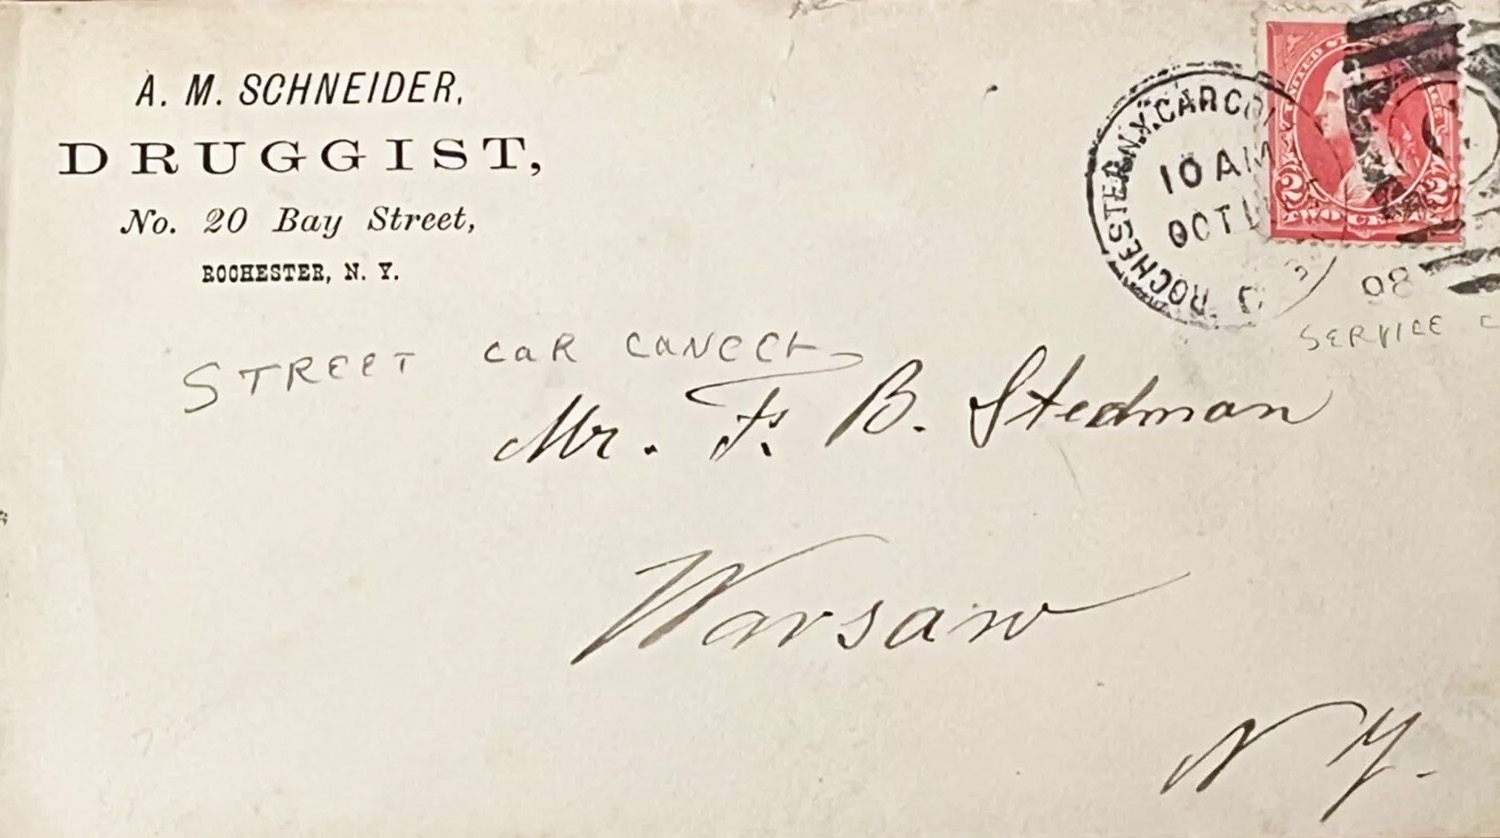 A. M. SCHNEIDER,
DRUGGIST,
No. 20 Bay Street,
ROCHESTER, N. Y.
ROCHESTER, N.Y. CAR
10 AM
OCT
UNITED
2 2
98
SERVICE
STREET CAR CANCEL
Mr. F. B. Stedman
Warsaw
N Y.